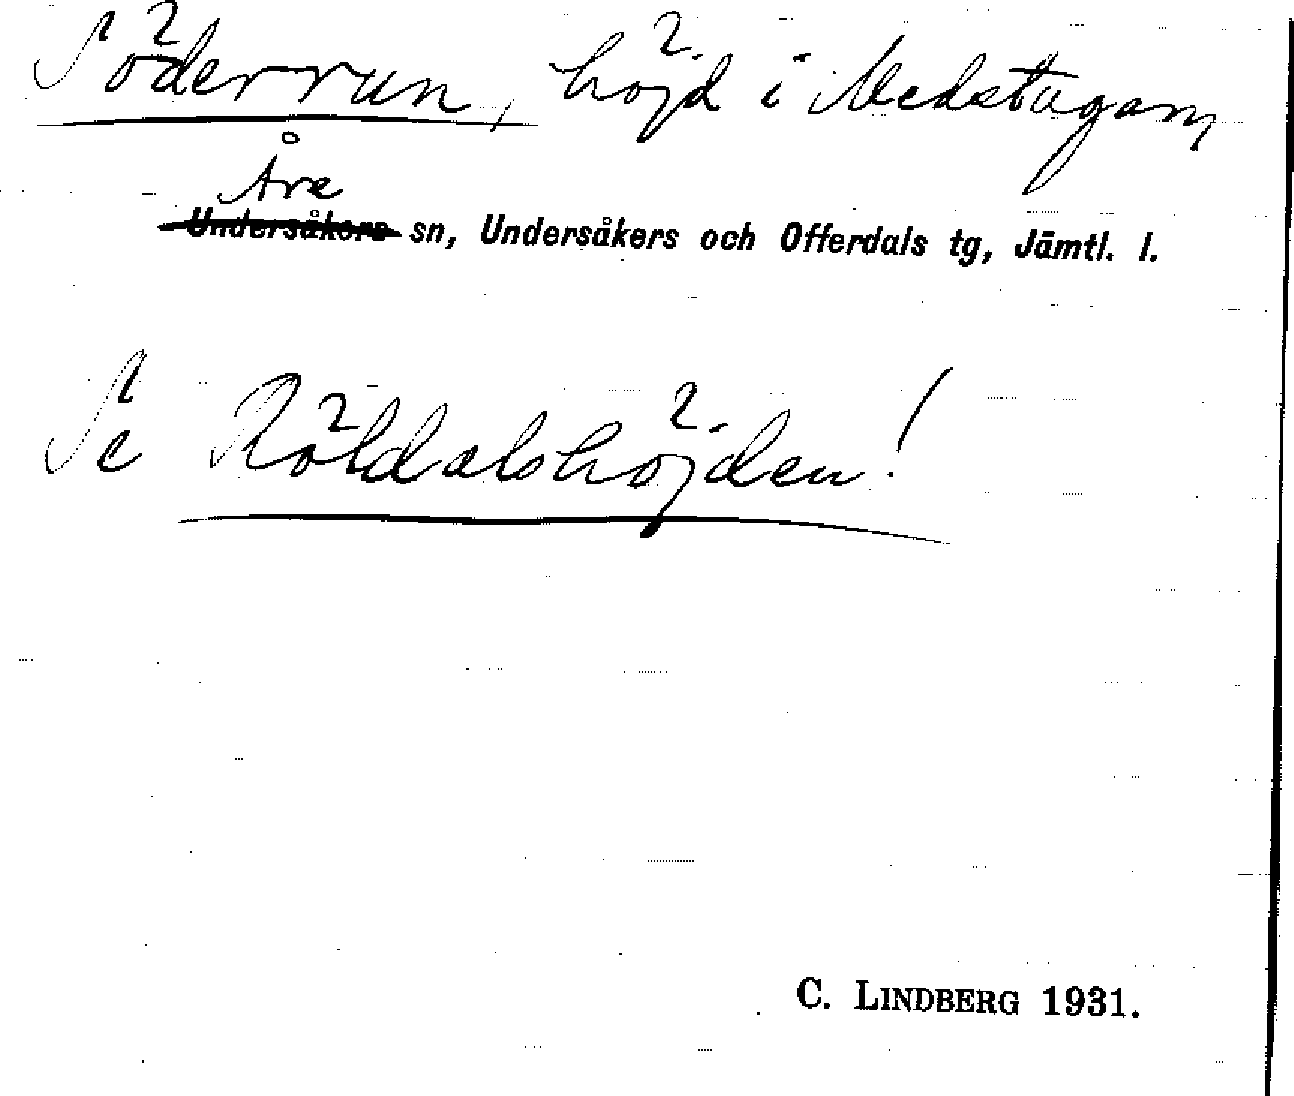 Söderrun, höjd i Medstugan,
Åre
Undersåkers sn, Undersåkers och Offerdals tg, Jämtl. l.
Se Röldalshöjden!
C. LINDBERG 1931.